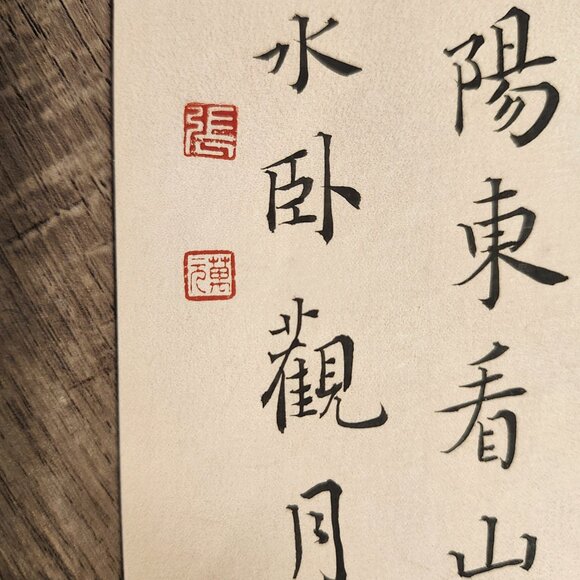 陽東看山
水卧觀月
張
萬元